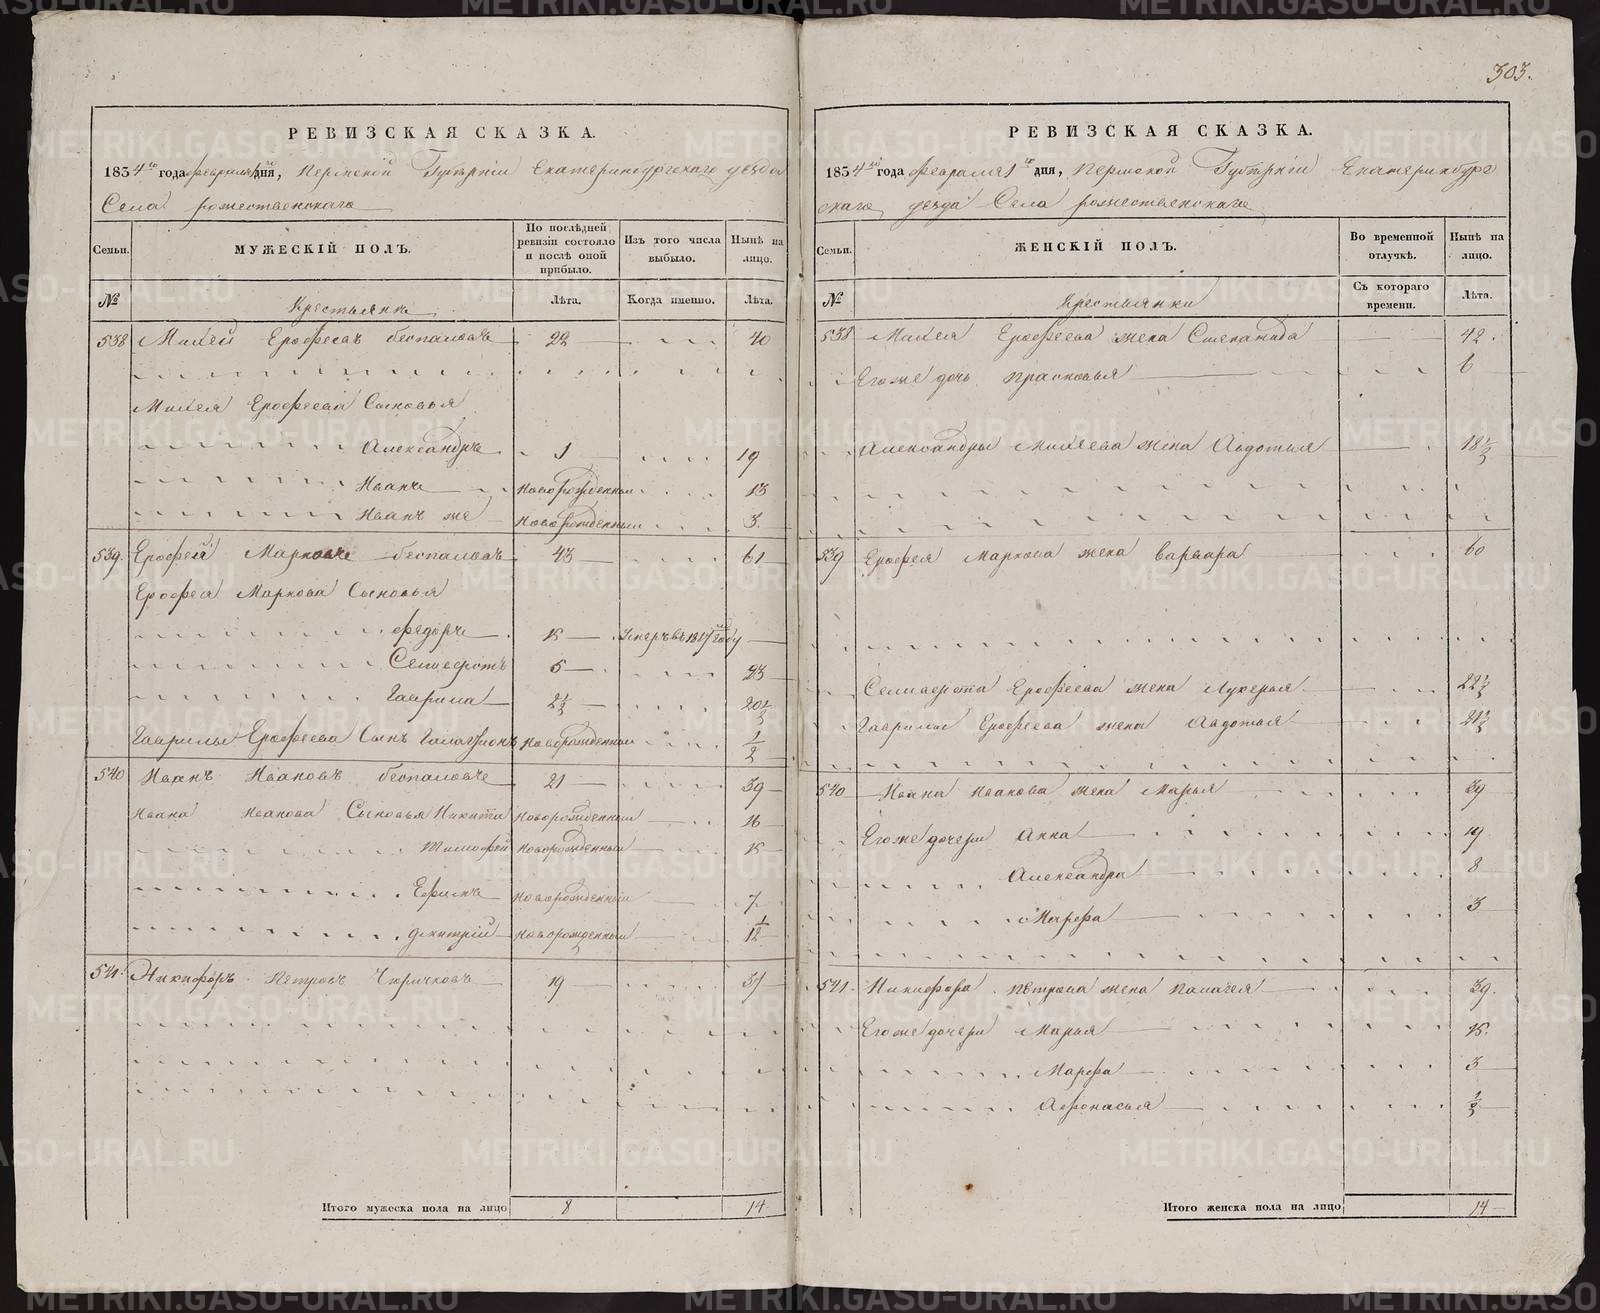 303.
РЕВИЗСКАЯ СКАЗКА.
1834го года февраля дня, Пермской Губерніи Екатеринбургскаго уезда
Села рожественскаго
Семьи.
МУЖЕСКІЙ ПОЛЪ.
По послѣдней ревизіи состояло и послѣ оной прибыло.
Изъ того числа выбыло.
Нынѣ на лицо.
№
Крестьяне
Лѣта.
Когда именно.
Лѣта.
538 Михей Ерофеевъ беспаловъ 22 40
Михея Ерофеева Сыновья
Александръ 1 19
Иванъ новорожденный 13
Иванъ же новорожденный 3.
539. Ерофей Марковъ беспаловъ 43 61
Ерофея Маркова Сыновья
Федоръ 15 Умеръ въ 1817м году
Селиверстъ 5 23
Гаврила 2½ 20½
Гаврилы Ерофеева Сынъ Галактіонъ новорожденный ½
540 Иванъ Ивановъ беспаловъ 21 39
Ивана Иванова Сыновья Никита новорожденный 16
Тимофей новорожденный 15
Ефимъ новорожденный 7
Дмитрій новорожденный 1/12
541. Никифоръ Петровъ 19 37
Итого мужеска пола на лицо 8 14
РЕВИЗСКАЯ СКАЗКА.
1834го года февраля 1го дня, Пермской Губерніи Екатеринбург
скаго уезда Села рожественскаго
Семьи.
ЖЕНСКІЙ ПОЛЪ.
Во временной отлучкѣ.
Нынѣ на лицо.
№
Крестьянки
Съ котораго времени.
Лѣта.
538 Михея Ерофеева жена Степанида 42.
Его же дочь Прасковья 6
Александры Михеева жена Авдотья 18½
539 Ерофея Маркова жена Варвара 60
Селиверста Ерофеева жена Лукерья 22½
Гаврилы Ерофеева жена Авдотья 21½
540 Ивана Иванова жена Марья 39
Его же дочери Анна 19
Александра 8
Марфа 3
541. Никифора Петрова жена Палагея 39.
Его же дочери Марья 15.
Марфа 3
Афонасья ½
Итого женска пола на лицо 14
METRIKI.GASO-URAL.RU